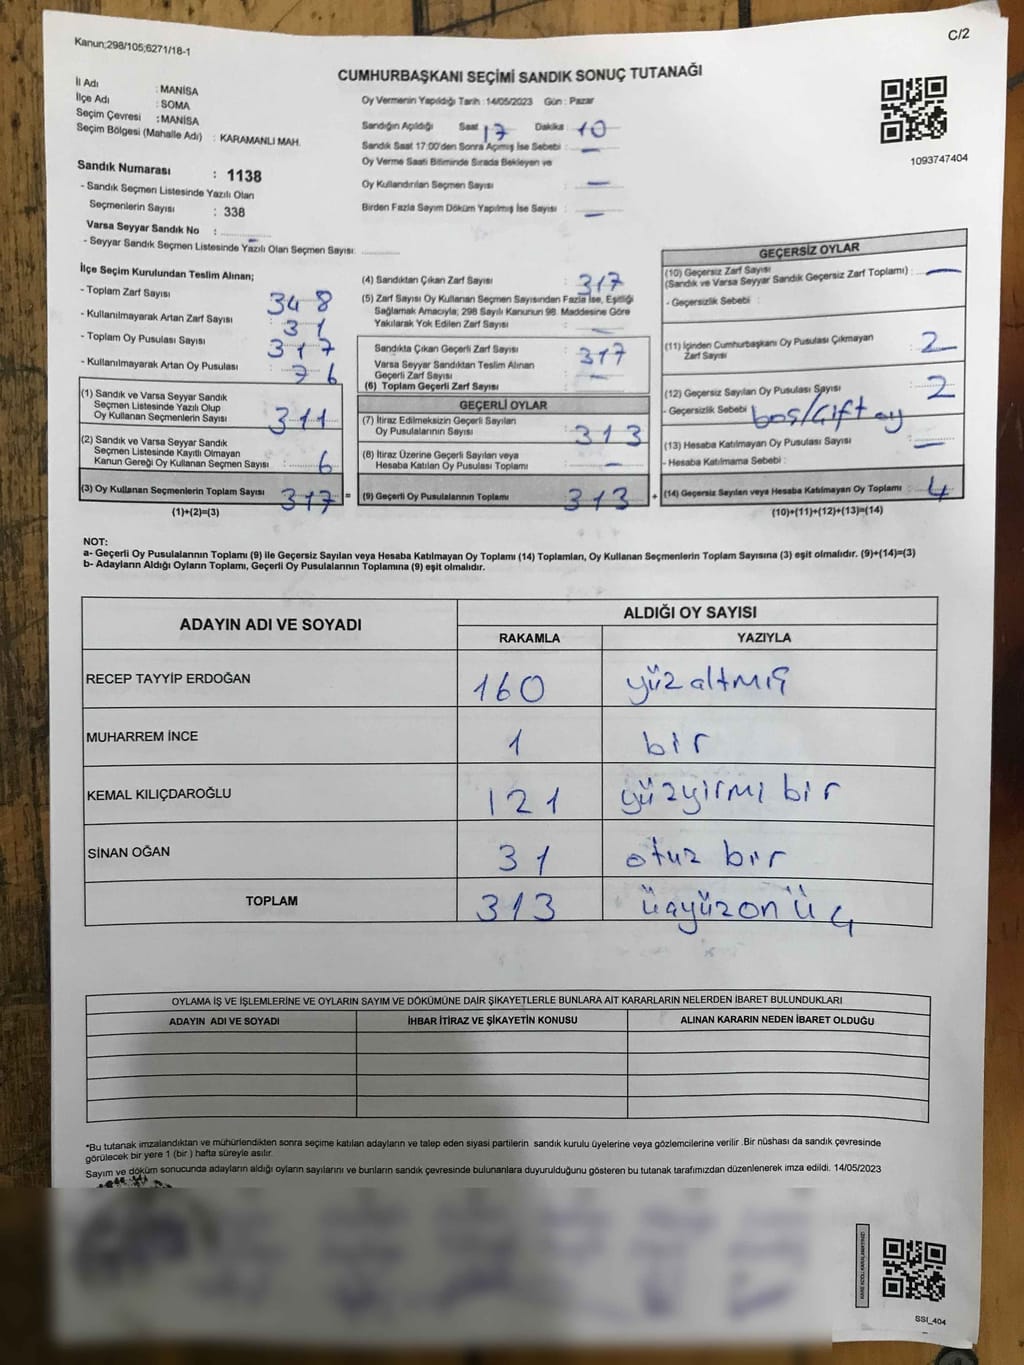 Kanun;298/105;6271/18-1
C/2
CUMHURBAŞKANI SEÇİMİ SANDIK SONUÇ TUTANAĞI
İl Adı : MANİSA
İlçe Adı : SOMA
Seçim Çevresi : MANİSA
Seçim Bölgesi (Mahalle Adı) : KARAMANLI MAH.
Oy Vermenin Yapıldığı Tarih :14/05/2023 Gün : Pazar
Sandığın Açıldığı Saat 17 Dakika 10
Sandık Saat 17:00'den Sonra Açmış İse Sebebi : —
Oy Verme Saati Bitiminde Sırada Bekleyen ve
Oy Kullandırılan Seçmen Sayısı : —
Birden Fazla Sayım Döküm Yapılmış İse Sayısı : —
1093747404
Sandık Numarası : 1138
- Sandık Seçmen Listesinde Yazılı Olan
Seçmenlerin Sayısı : 338
Varsa Seyyar Sandık No : —
- Seyyar Sandık Seçmen Listesinde Yazılı Olan Seçmen Sayısı:
İlçe Seçim Kurulundan Teslim Alınan;
- Toplam Zarf Sayısı 348
- Kullanılmayarak Artan Zarf Sayısı 31
- Toplam Oy Pusulası Sayısı 317
- Kullanılmayarak Artan Oy Pusulası 76
(1) Sandık ve Varsa Seyyar Sandık
Seçmen Listesinde Yazılı Olup
Oy Kullanan Seçmenlerin Sayısı : 311
(2) Sandık ve Varsa Seyyar Sandık
Seçmen Listesinde Kayıtlı Olmayan
Kanun Gereği Oy Kullanan Seçmen Sayısı : 6
(3) Oy Kullanan Seçmenlerin Toplam Sayısı 317 =
(1)+(2)=(3)
(4) Sandıktan Çıkan Zarf Sayısı : 317
(5) Zarf Sayısı Oy Kullanan Seçmen Sayısından Fazla İse, Eşitliği
Sağlamak Amacıyla; 298 Sayılı Kanunun 98. Maddesine Göre
Yakılarak Yok Edilen Zarf Sayısı : —
Sandıkta Çıkan Geçerli Zarf Sayısı : 317
Varsa Seyyar Sandıktan Teslim Alınan
Geçerli Zarf Sayısı : —
(6) Toplam Geçerli Zarf Sayısı :
GEÇERLİ OYLAR
(7) İtiraz Edilmeksizin Geçerli Sayılan
Oy Pusulalarının Sayısı : 313
(8) İtiraz Üzerine Geçerli Sayılan veya
Hesaba Katılan Oy Pusulası Toplamı : —
(9) Geçerli Oy Pusulalarının Toplamı 313 +
GEÇERSİZ OYLAR
(10) Geçersiz Zarf Sayısı
(Sandık ve Varsa Seyyar Sandık Geçersiz Zarf Toplamı) : —
- Geçersizlik Sebebi :
(11) İçinden Cumhurbaşkanı Oy Pusulası Çıkmayan
Zarf Sayısı : 2
(12) Geçersiz Sayılan Oy Pusulası Sayısı : 2
- Geçersizlik Sebebi boş/Çift oy
(13) Hesaba Katılmayan Oy Pusulası Sayısı : —
- Hesaba Katılmama Sebebi :
(14) Geçersiz Sayılan veya Hesaba Katılmayan Oy Toplamı : 4
(10)+(11)+(12)+(13)=(14)
NOT:
a- Geçerli Oy Pusulalarının Toplamı (9) ile Geçersiz Sayılan veya Hesaba Katılmayan Oy Toplamı (14) Toplamları, Oy Kullanan Seçmenlerin Toplam Sayısına (3) eşit olmalıdır. (9)+(14)=(3)
b- Adayların Aldığı Oyların Toplamı, Geçerli Oy Pusulalarının Toplamına (9) eşit olmalıdır.
ADAYIN ADI VE SOYADI ALDIĞI OY SAYISI
RAKAMLA YAZIYLA
RECEP TAYYİP ERDOĞAN 160 yüz altmış
MUHARREM İNCE 1 bir
KEMAL KILIÇDAROĞLU 121 yüzyirmi bir
SİNAN OĞAN 31 otuz bir
TOPLAM 313 üçyüzon üç
OYLAMA İŞ VE İŞLEMLERİNE VE OYLARIN SAYIM VE DÖKÜMÜNE DAİR ŞİKAYETLERLE BUNLARA AİT KARARLARIN NELERDEN İBARET BULUNDUKLARI
ADAYIN ADI VE SOYADI İHBAR İTİRAZ VE ŞİKAYETİN KONUSU ALINAN KARARIN NEDEN İBARET OLDUĞU
*Bu tutanak imzalandıktan ve mühürlendikten sonra seçime katılan adayların ve talep eden siyasi partilerin sandık kurulu üyelerine veya gözlemcilerine verilir .Bir nüshası da sandık çevresinde
görülecek bir yere 1 (bir ) hafta süreyle asılır.
Sayım ve döküm sonucunda adayların aldığı oyların sayılarını ve bunların sandık çevresinde bulunanlara duyurulduğunu gösteren bu tutanak tarafımızdan düzenlenerek imza edildi. 14/05/2023
SSI_404